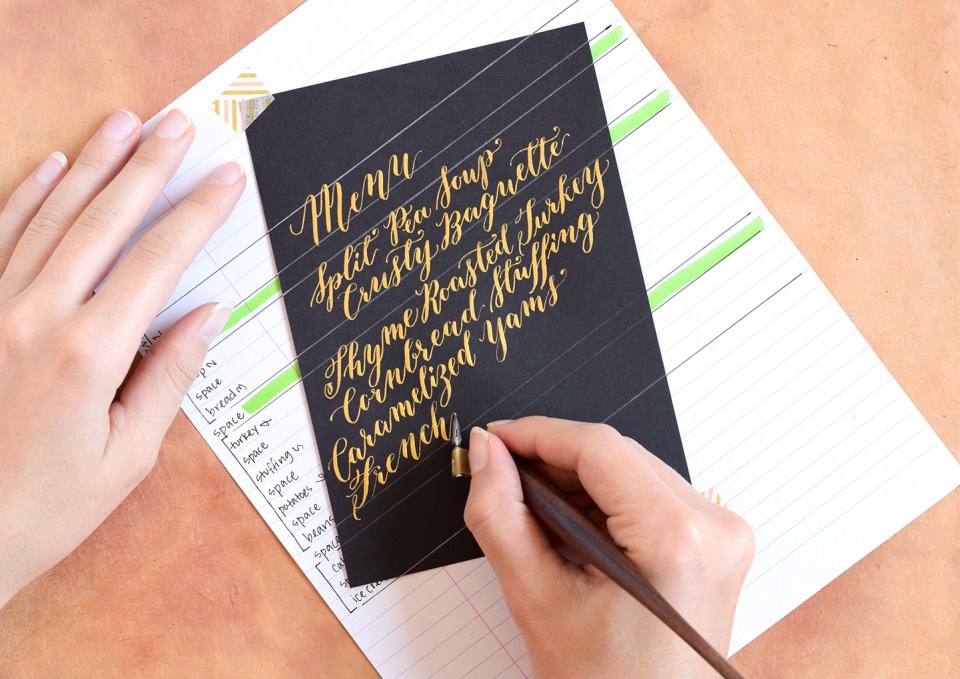 Menu
Split Pea Soup
Crusty Baguette
Thyme Roasted Turkey
Cornbread Stuffing
Caramelized Yams
French
space
bread
space
turkey
space
stuffing
space
potatoes
space
beans
space
ice